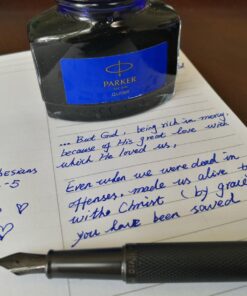 PARKER
QUINK
... But God, being rich in mercy,
because of His great love with
which He loved us,
Even when we were dead in
offenses, made us alive t
withe Christ (by grac
you have been saved
-5